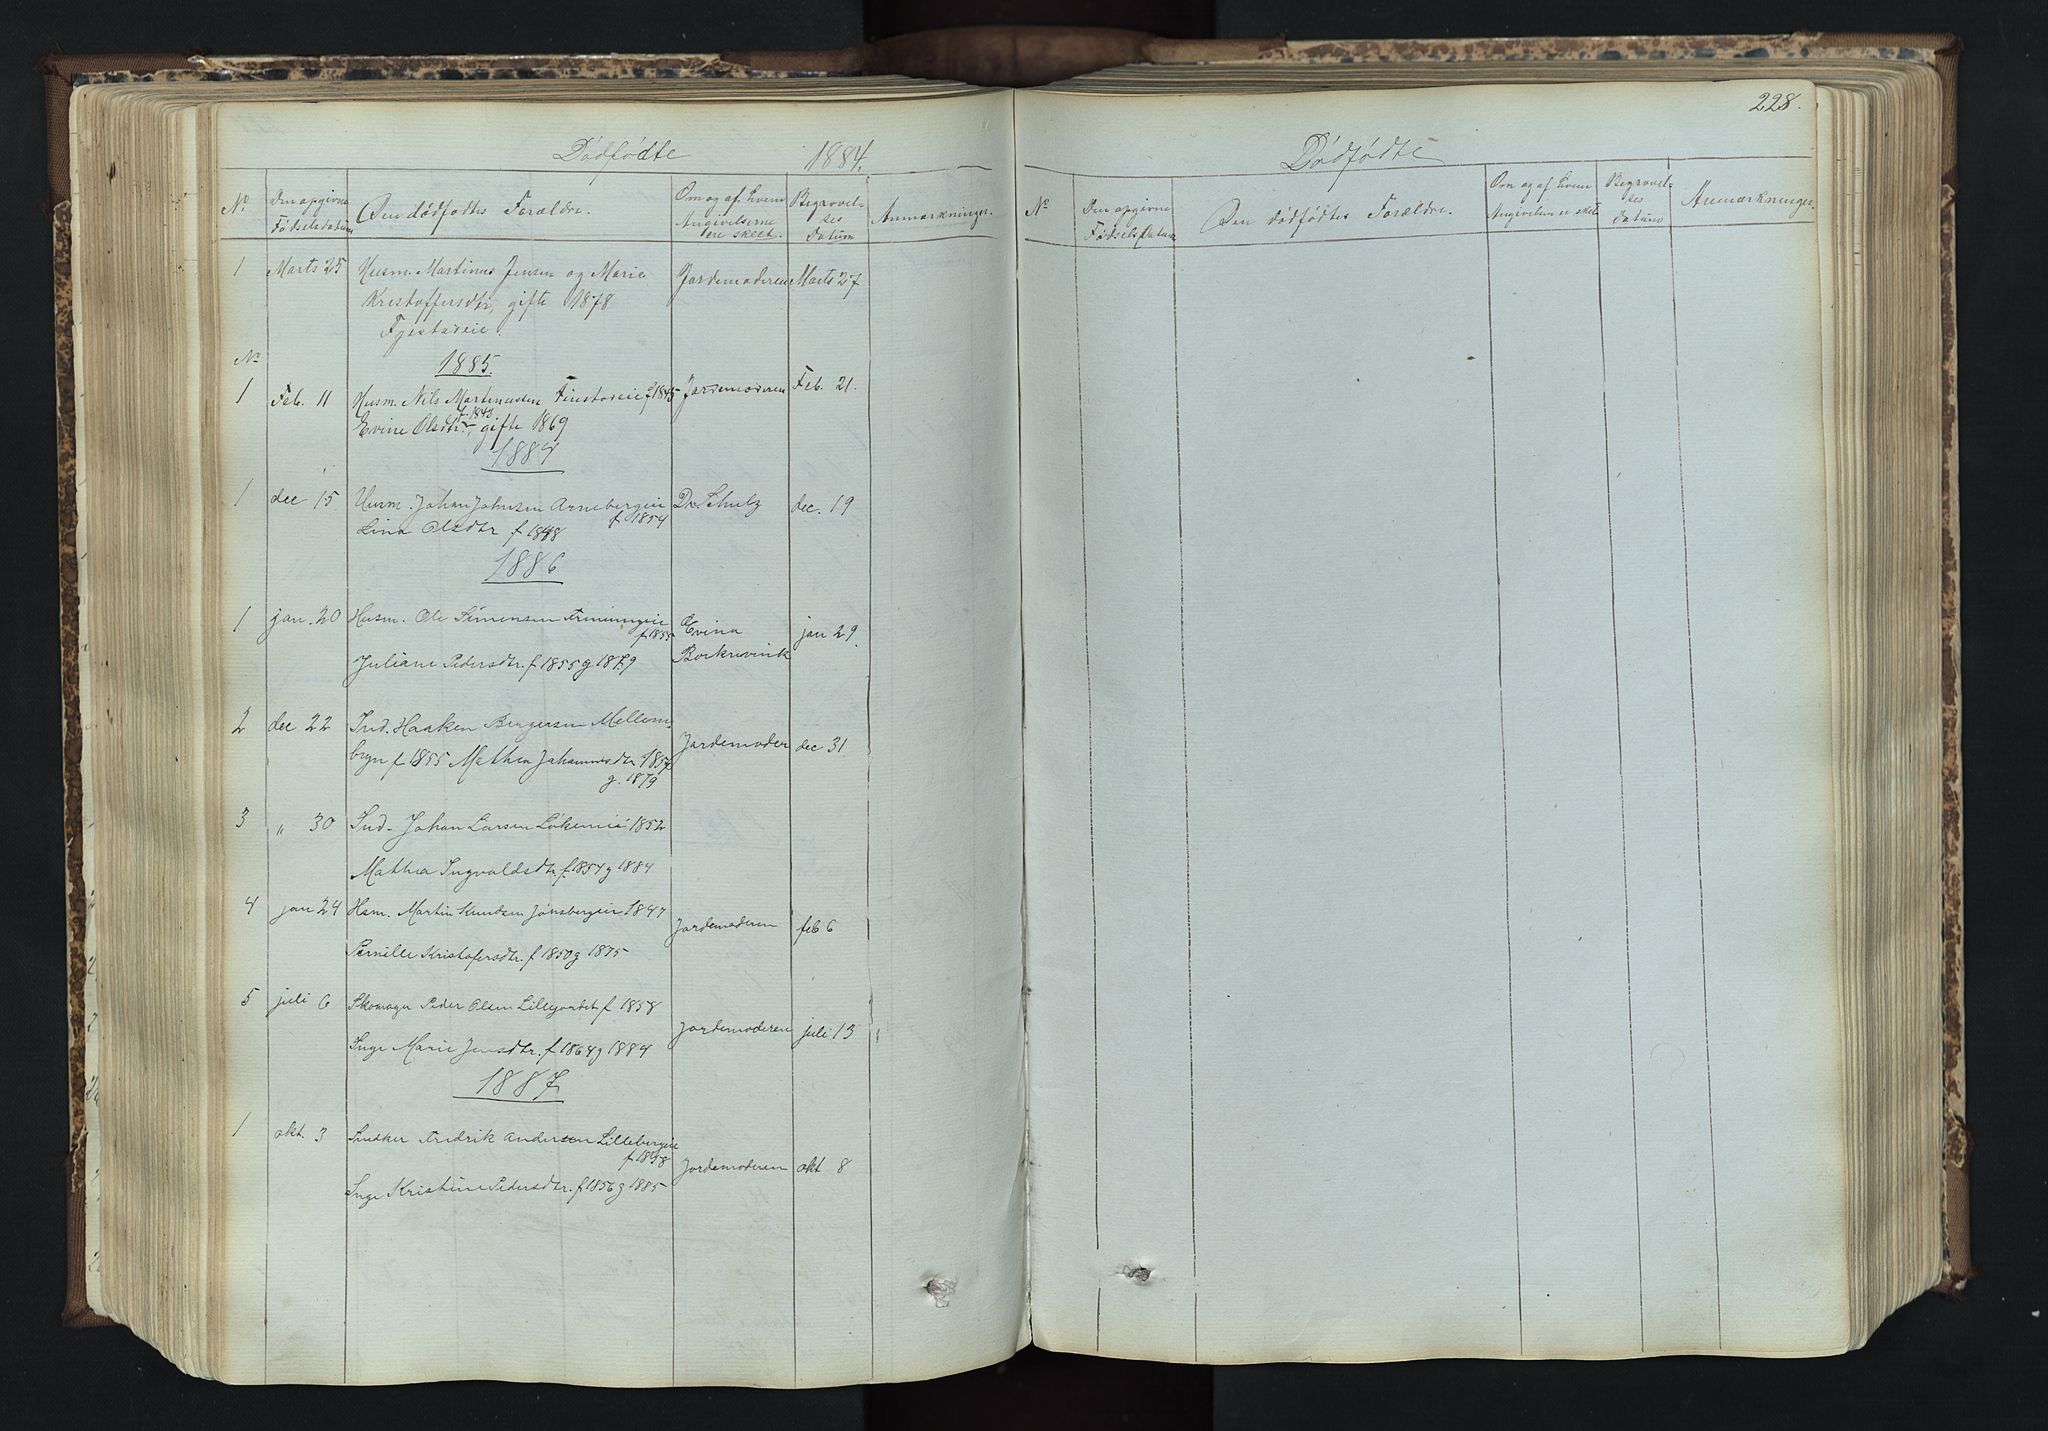 Dødfødte 1884.
No
Den opgivne Fødselsdatum
Den dødfødtes Forældre.
Om og af hvem Angivelserne ere skeet.
Begravelses Datum
Anmærkninger.
1 Marts 25 Husm. Martinus Jensen og Marie Jordemoderen Marts 27
Kristoffersdtr, gifte 1878
No
1885.
1 Feb. 11 Husm. Nils Martinusen f 1845 Jordemoderen Feb. 21.
Evine Olsdtr. f. 1843, gifte 1869
1 dec 15 Husm. Johan Johnsen Arnebergeie Dr. Schulz dec. 19
f 1854
Lina Olsdtr f 1848
1886
1 jan. 20 Husm. Ole Simensen Evina jan 29
f 1855
Juliane Pedersdtr. f 1855 g 1879
2 dec 22 Ind. Haaken Bergersen Mellem-
bryn f 1855 Mathea Johannesdtr 1857 Jordemoder dec 31
g. 1879
3 " 30 Ind. Johan Larsen Løkeneie 1852
Mathea Ingvaldsdtr. f. 1854 g 1884
4 jan 24 Hsm. Martin Knudsen Jønsbergeie 1847 Jordemoderen feb 6
Pernille Kristofersdtr. f 1850 g 1875
5 juli 6 Skomager Peder Olsen Lillejordet f 1858
Inge Marie Jensdtr. f 1864 g 1884 Jordemoderen juli 13
1887
1 okt. 3 Snedker Fredrik Andersen Lillebergeie
f 1858 Jordemoderen okt 8
Inge Kristine Pedersdtr. f 1856 g 1885
228.
Dødfødte
No
Den opgivne Fødsels Datum
Den dødfødtes Forældre.
Om og af hvem Angivelsen er sket
Begravelses Datum
Anmærkninger.